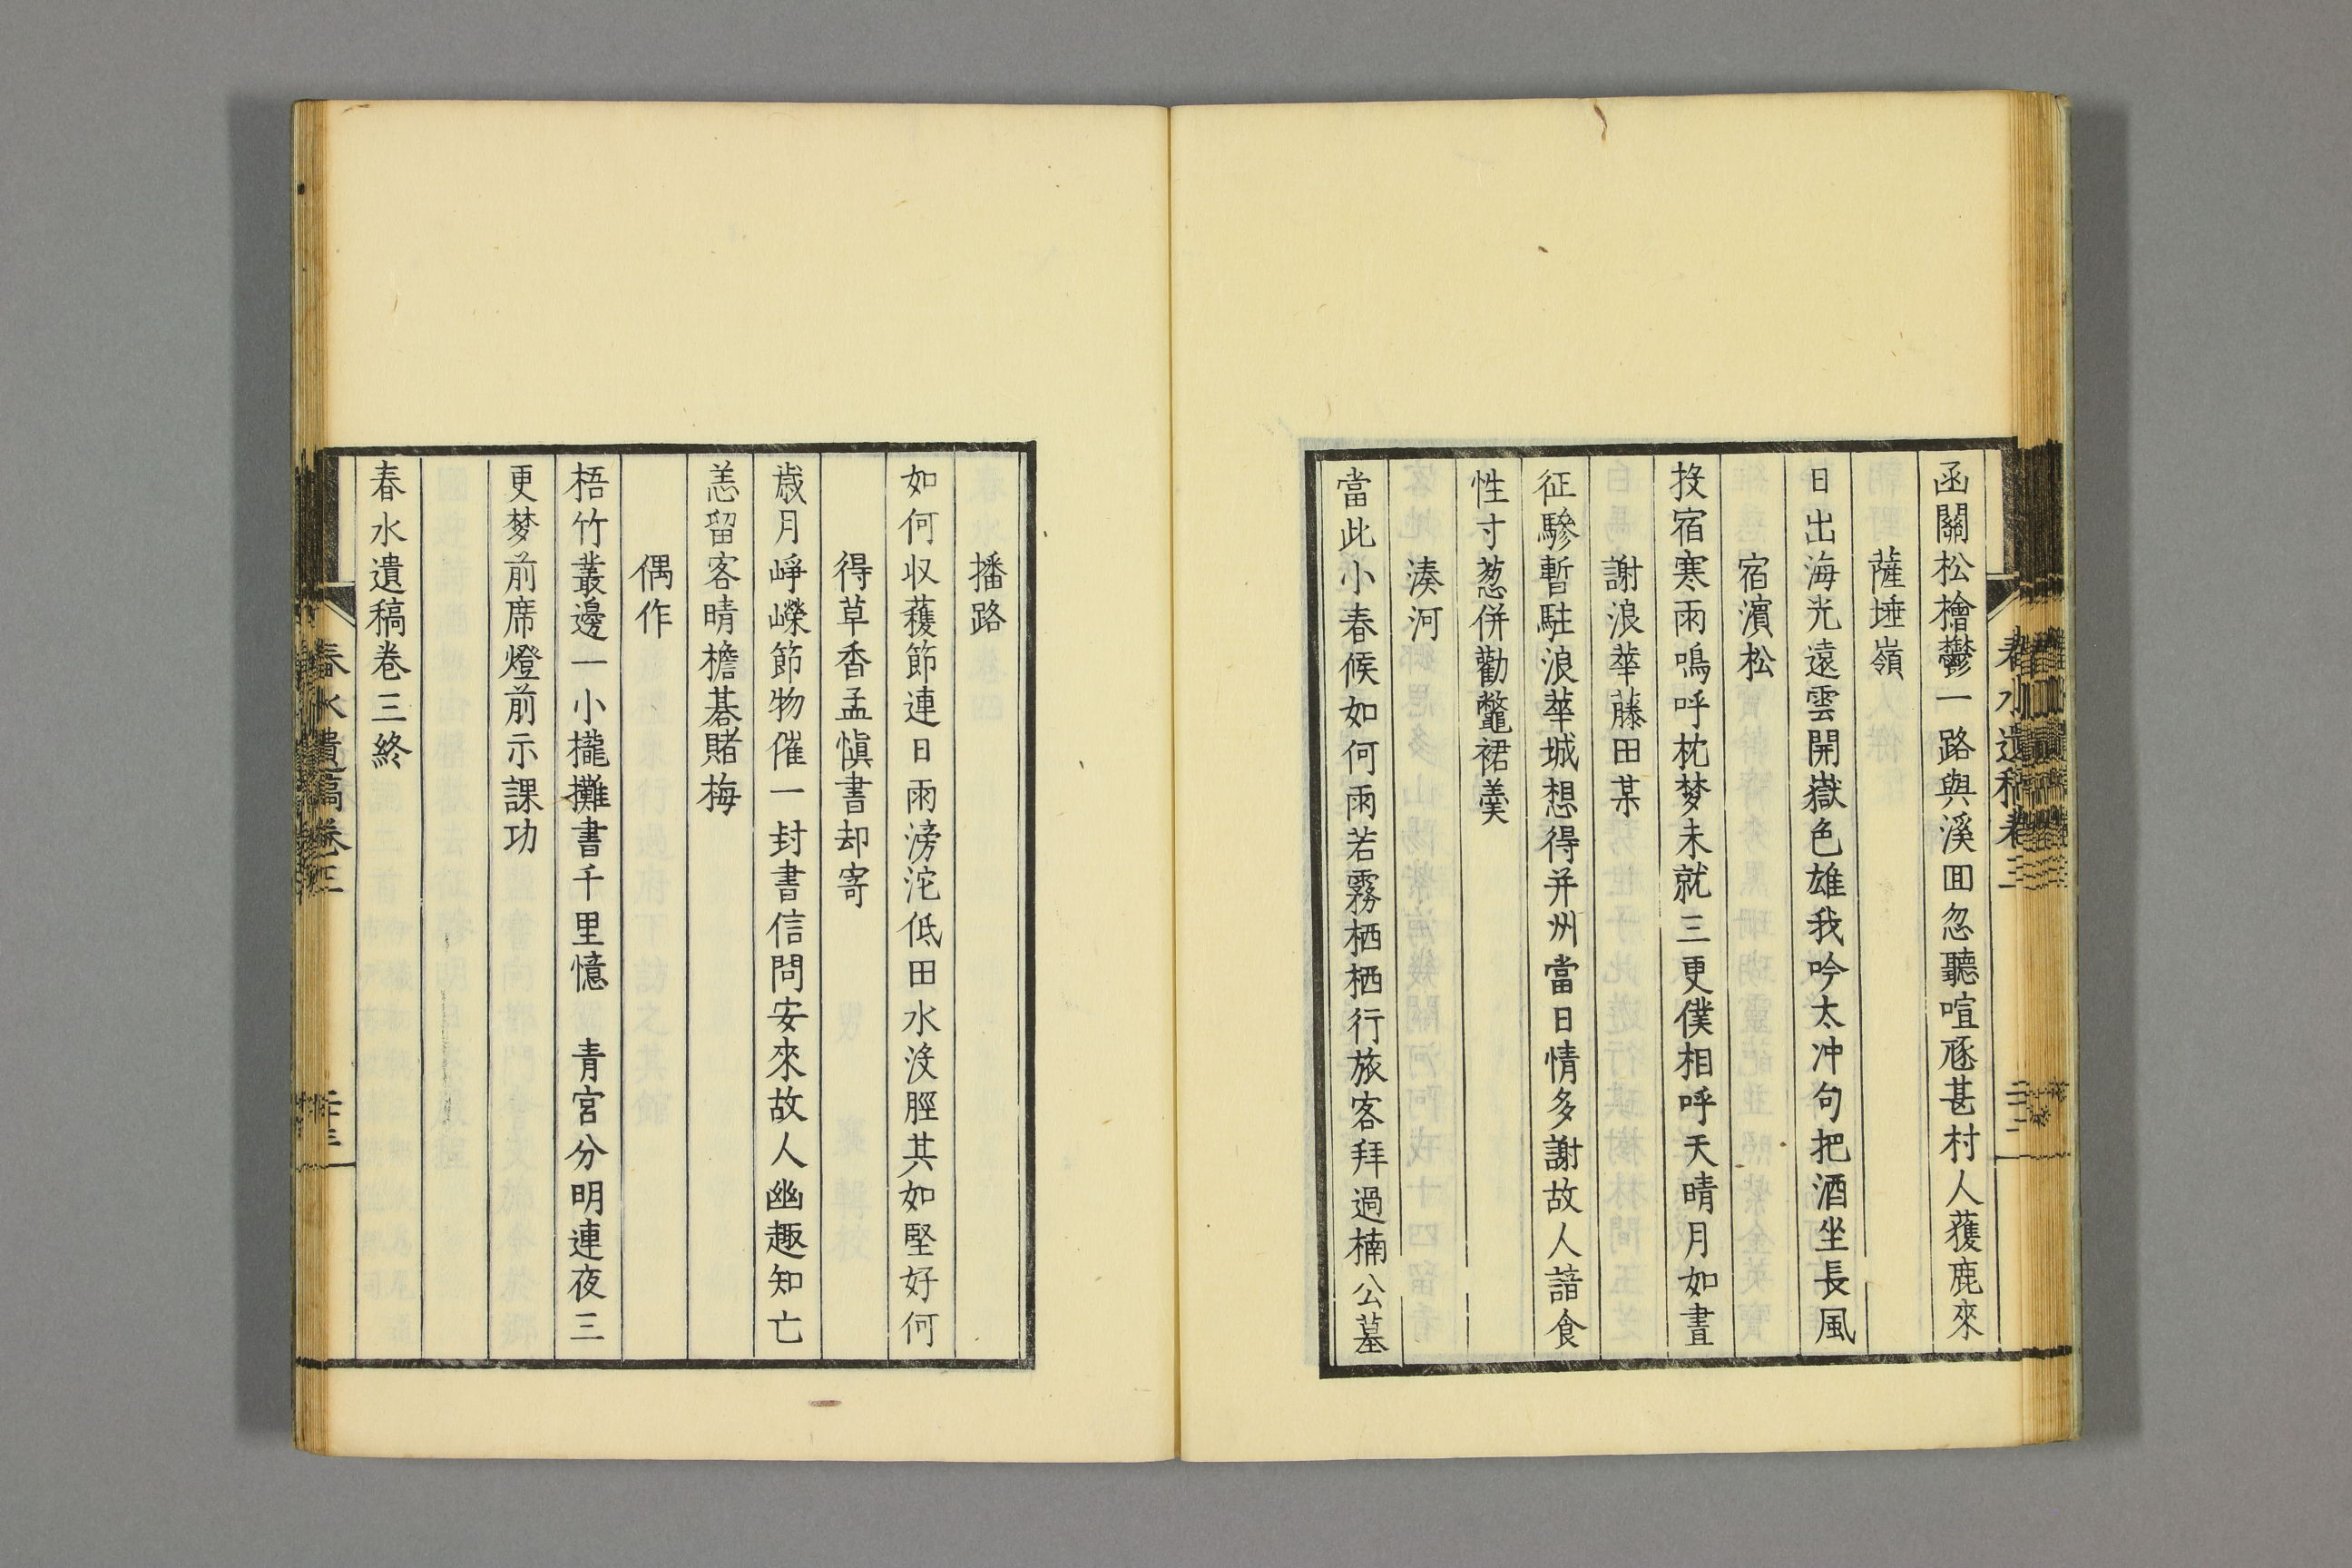 函關松檜鬱一路與溪回忽聽喧豗甚村人獲鹿來
薩埵嶺
日出海光遠雲開嶽色雄我吟太冲句把酒坐長風
宿濱松
投宿寒雨鳴呼枕梦未就三更僕相呼天晴月如晝
謝浪華藤田某
征驂暫駐浪華城想得并州當日情多謝故人諳食
性寸葱併勸鼈裙羹
湊河
當此小春候如何雨若霧栖栖行旅客拜過楠公墓
春水遺稿卷三
播路
如何収穫節連日雨滂沱低田水没脛其如堅好何
得草香孟愼書却寄
歳月崢嶸節物催一封書信問安來故人幽趣知亡
恙留客晴檐碁賭梅
偶作
梧竹叢邊一小櫳攤書千里憶　青宮分明連夜三
更梦前席燈前示課功
春水遺稿卷三終
春水遺稿卷三